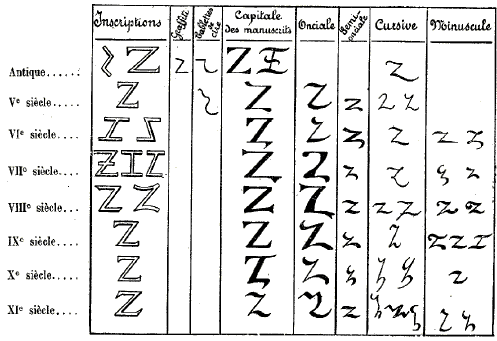 Inscriptions
Graffiti
Tablettes de cire
Capitale
des manuscrits
Onciale
Semi-
onciale
Cursive
Minuscule
Antique......
Vᵉ siècle....
VIᵉ siècle....
VIIᵉ siècle....
VIIIᵉ siècle....
IXᵉ siècle.....
Xᵉ siècle.....
XIᵉ siècle....